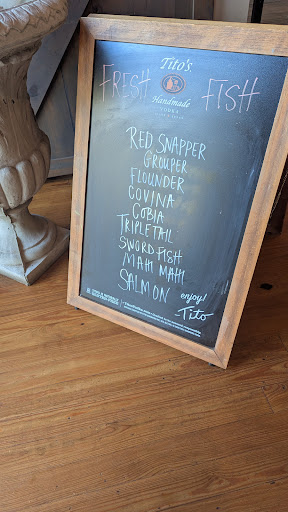 Tito's
FRESH FISH
Handmade
VODKA
RED SNAPPER
GROUPER
FLOUNDER
COVINA
COBIA
TRIPLETAIL
SWORDFISH
MAHI MAHI
SALMON
enjoy!
Tito